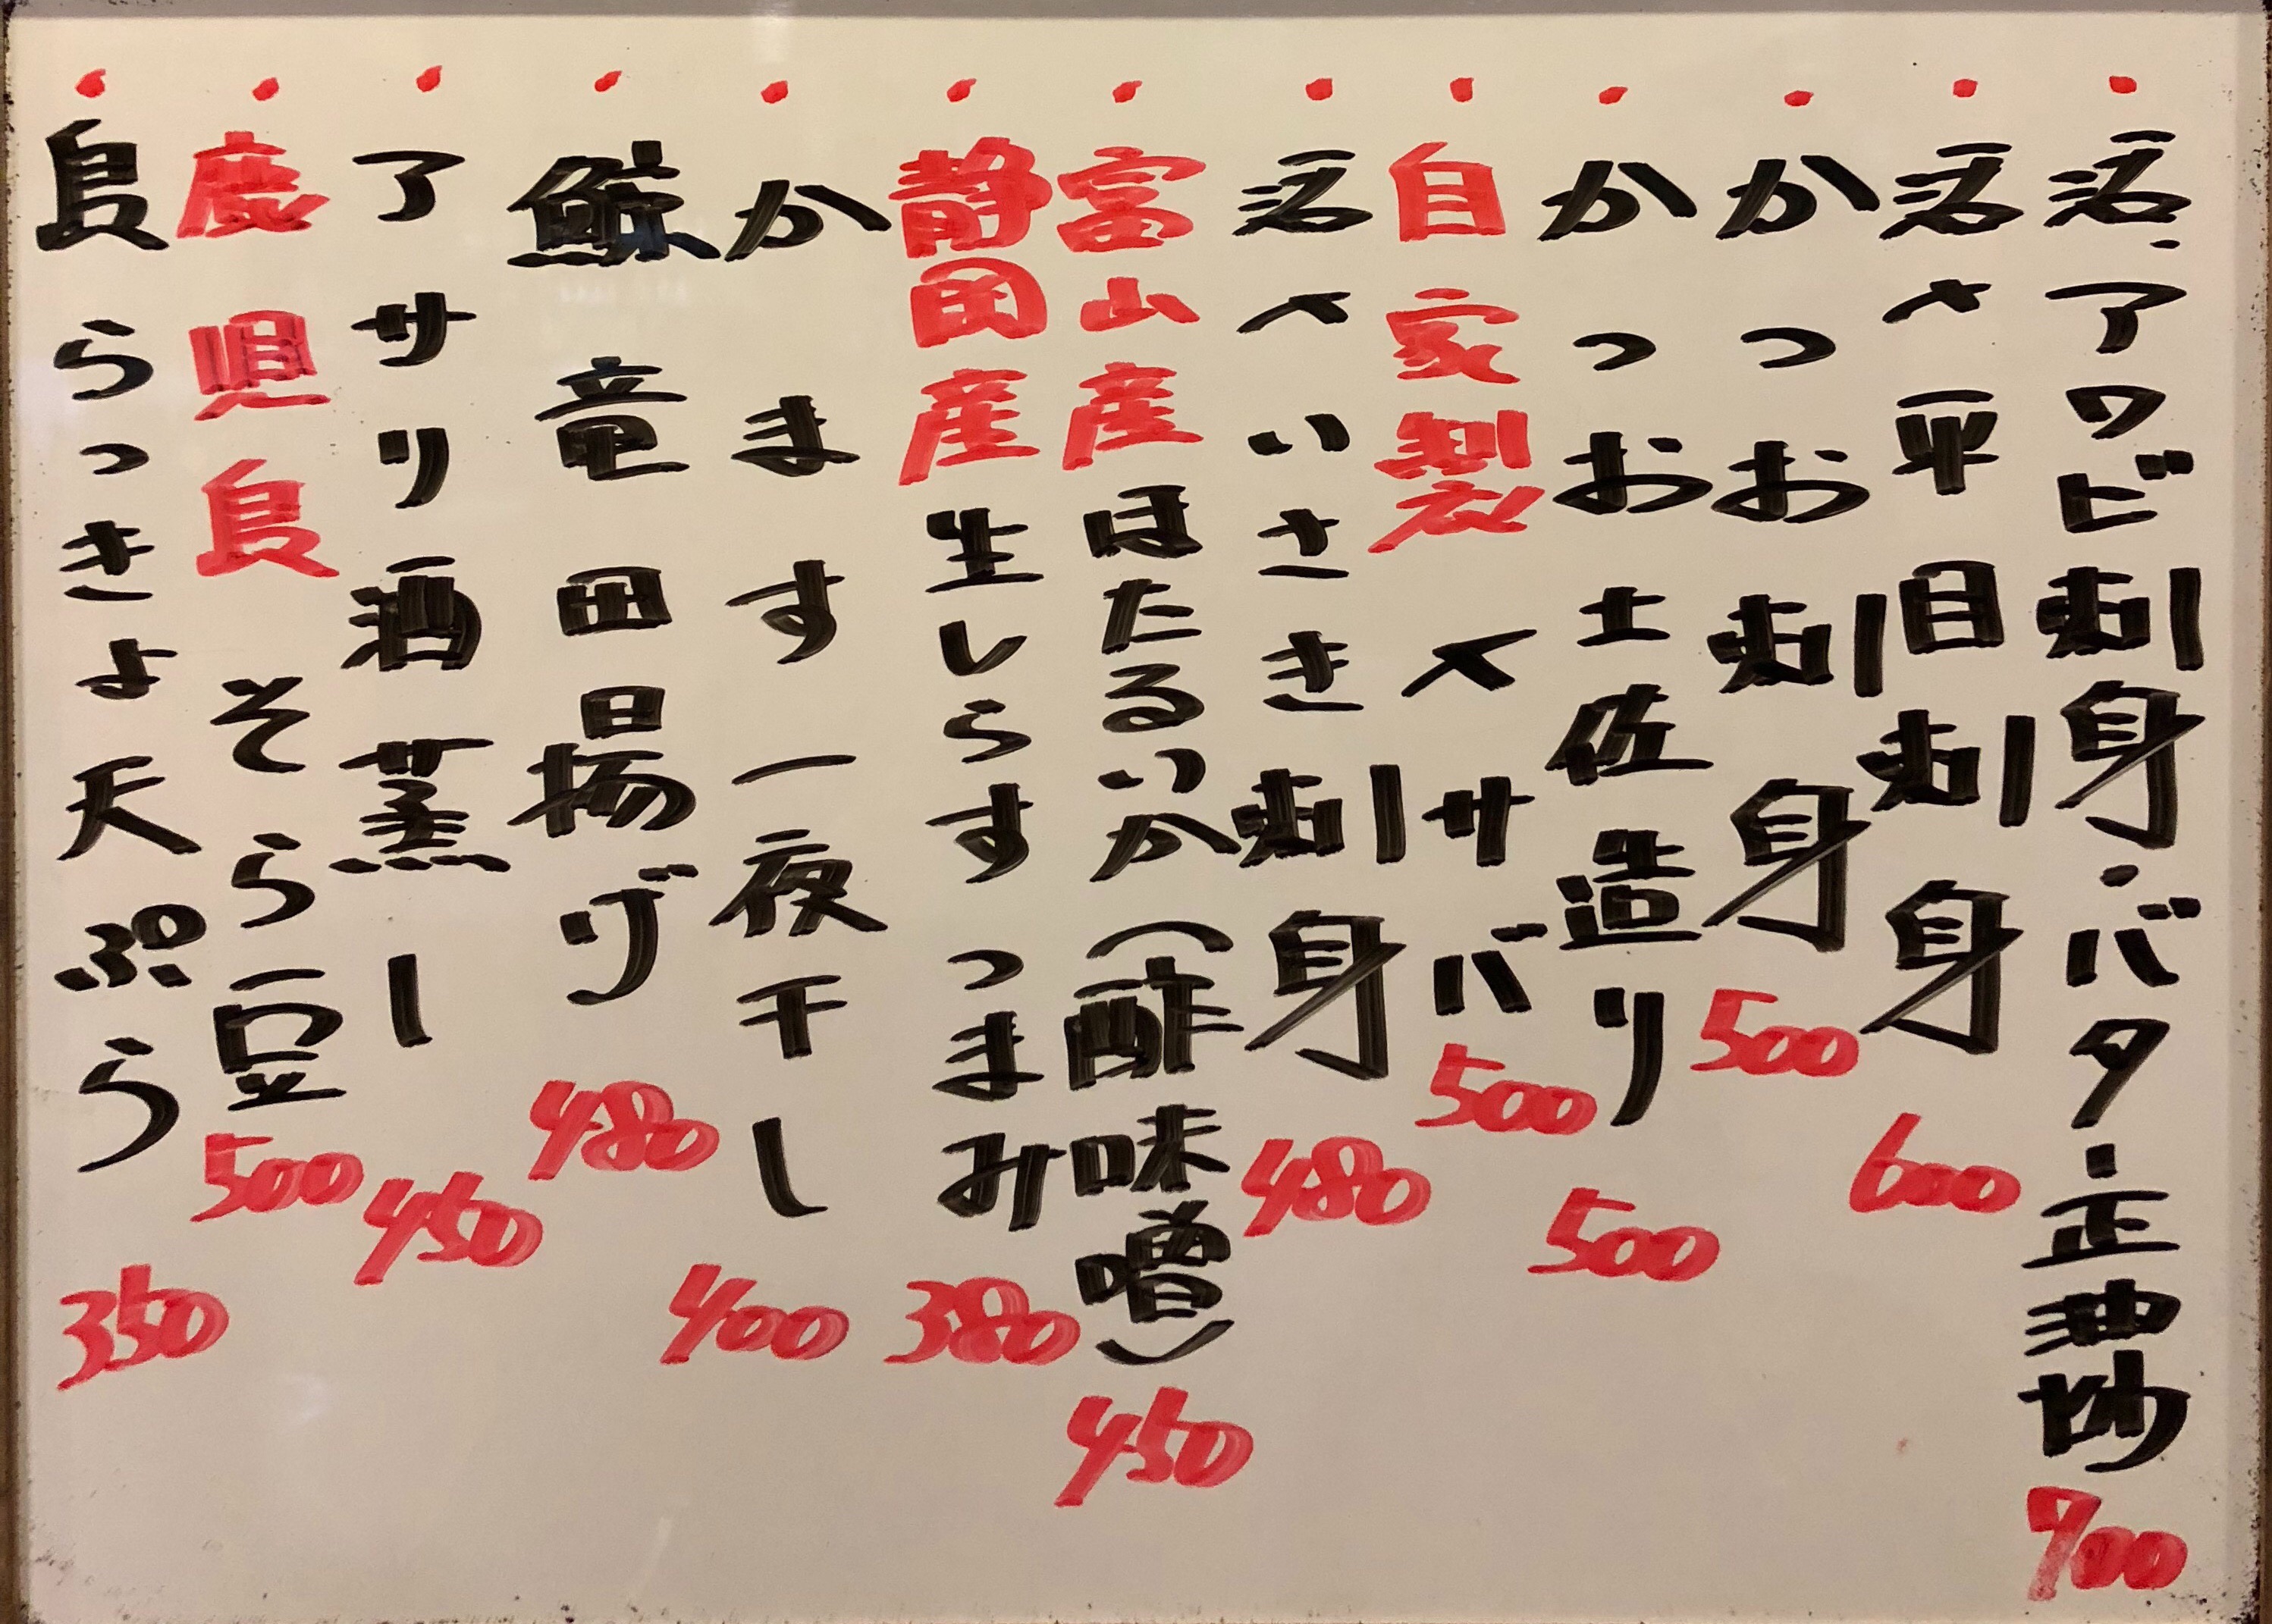 ・活アワビ刺身・バター正油炒 700
・活〆平目刺身 600
・かつお刺身 500
・かつお土佐造り 500
・自家製〆サバ 500
・活〆いさき刺身 480
・富山産ほたるいか(酢味噌) 450
・静岡産生しらすつまみ 380
・かます一夜干し 400
・鯨竜田揚げ 480
・アサリ酒蒸し 450
・鹿児島そら豆 500
・島らっきょ天ぷら 350